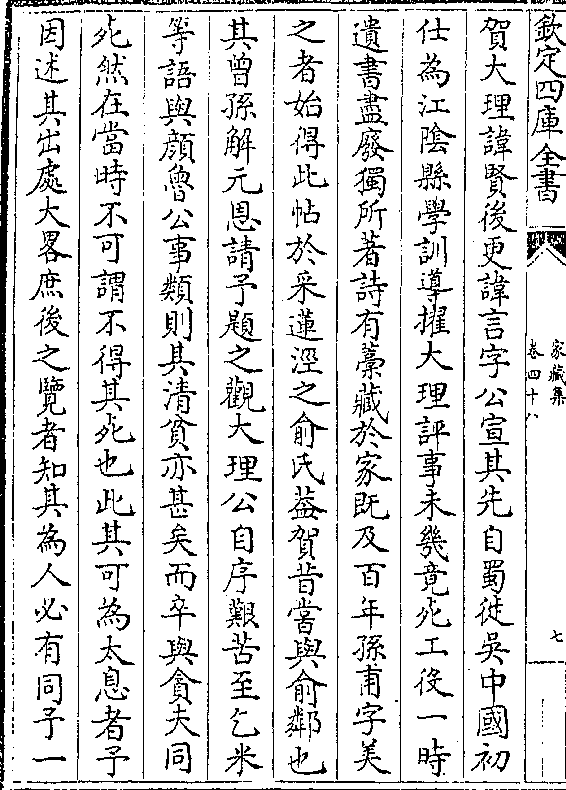 欽定四庫全書
家藏集
卷四十八
七
賀大理諱賢後更諱言字公宣其先自蜀徙吳中國初
仕為江陰縣學訓導擢大理評事未幾竟死工役一時
遺書盡廢獨所著詩有藁藏於家既及百年孫甫字美
之者始得此帖於采蓮涇之俞氏葢賀昔嘗與俞鄰也
其曾孫解元恩請予題之觀大理公自序艱苦至乞米
等語與顔魯公事類則其清貧亦甚矣而卒與貪夫同
死然在當時不可謂不得其死也此其可為太息者予
因述其出處大畧庶後之覽者知其為人必有同予一